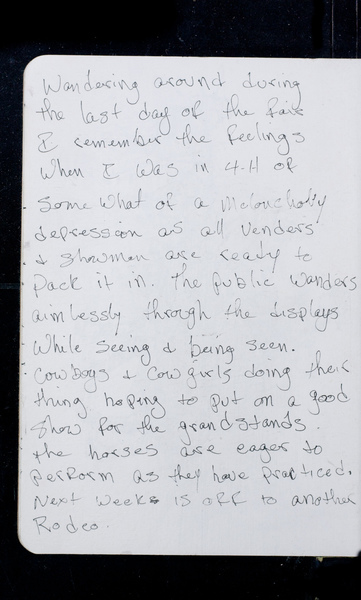 Wandering around during
the last day of the fair
I remember the feelings
when I was in 4-H of
some what of a Melancholly
depression as all venders
& showman are ready to
pack it in. The public wanders
aimlessly through the displays
while seeing & being seen.
Cowboys & Cowgirls doing their
thing hoping to put on a good
show for the grandstands.
the horses are eager to
perform as they have practiced.
Next weeks is off to another
Rodeo.